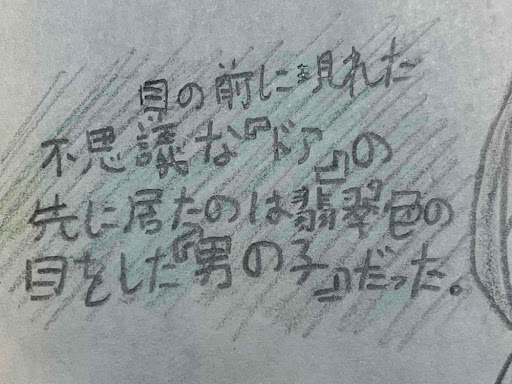 目の前に現れた
不思議な『ドア』の
先に居たのは翡翠色の
目をした『男の子』だった。